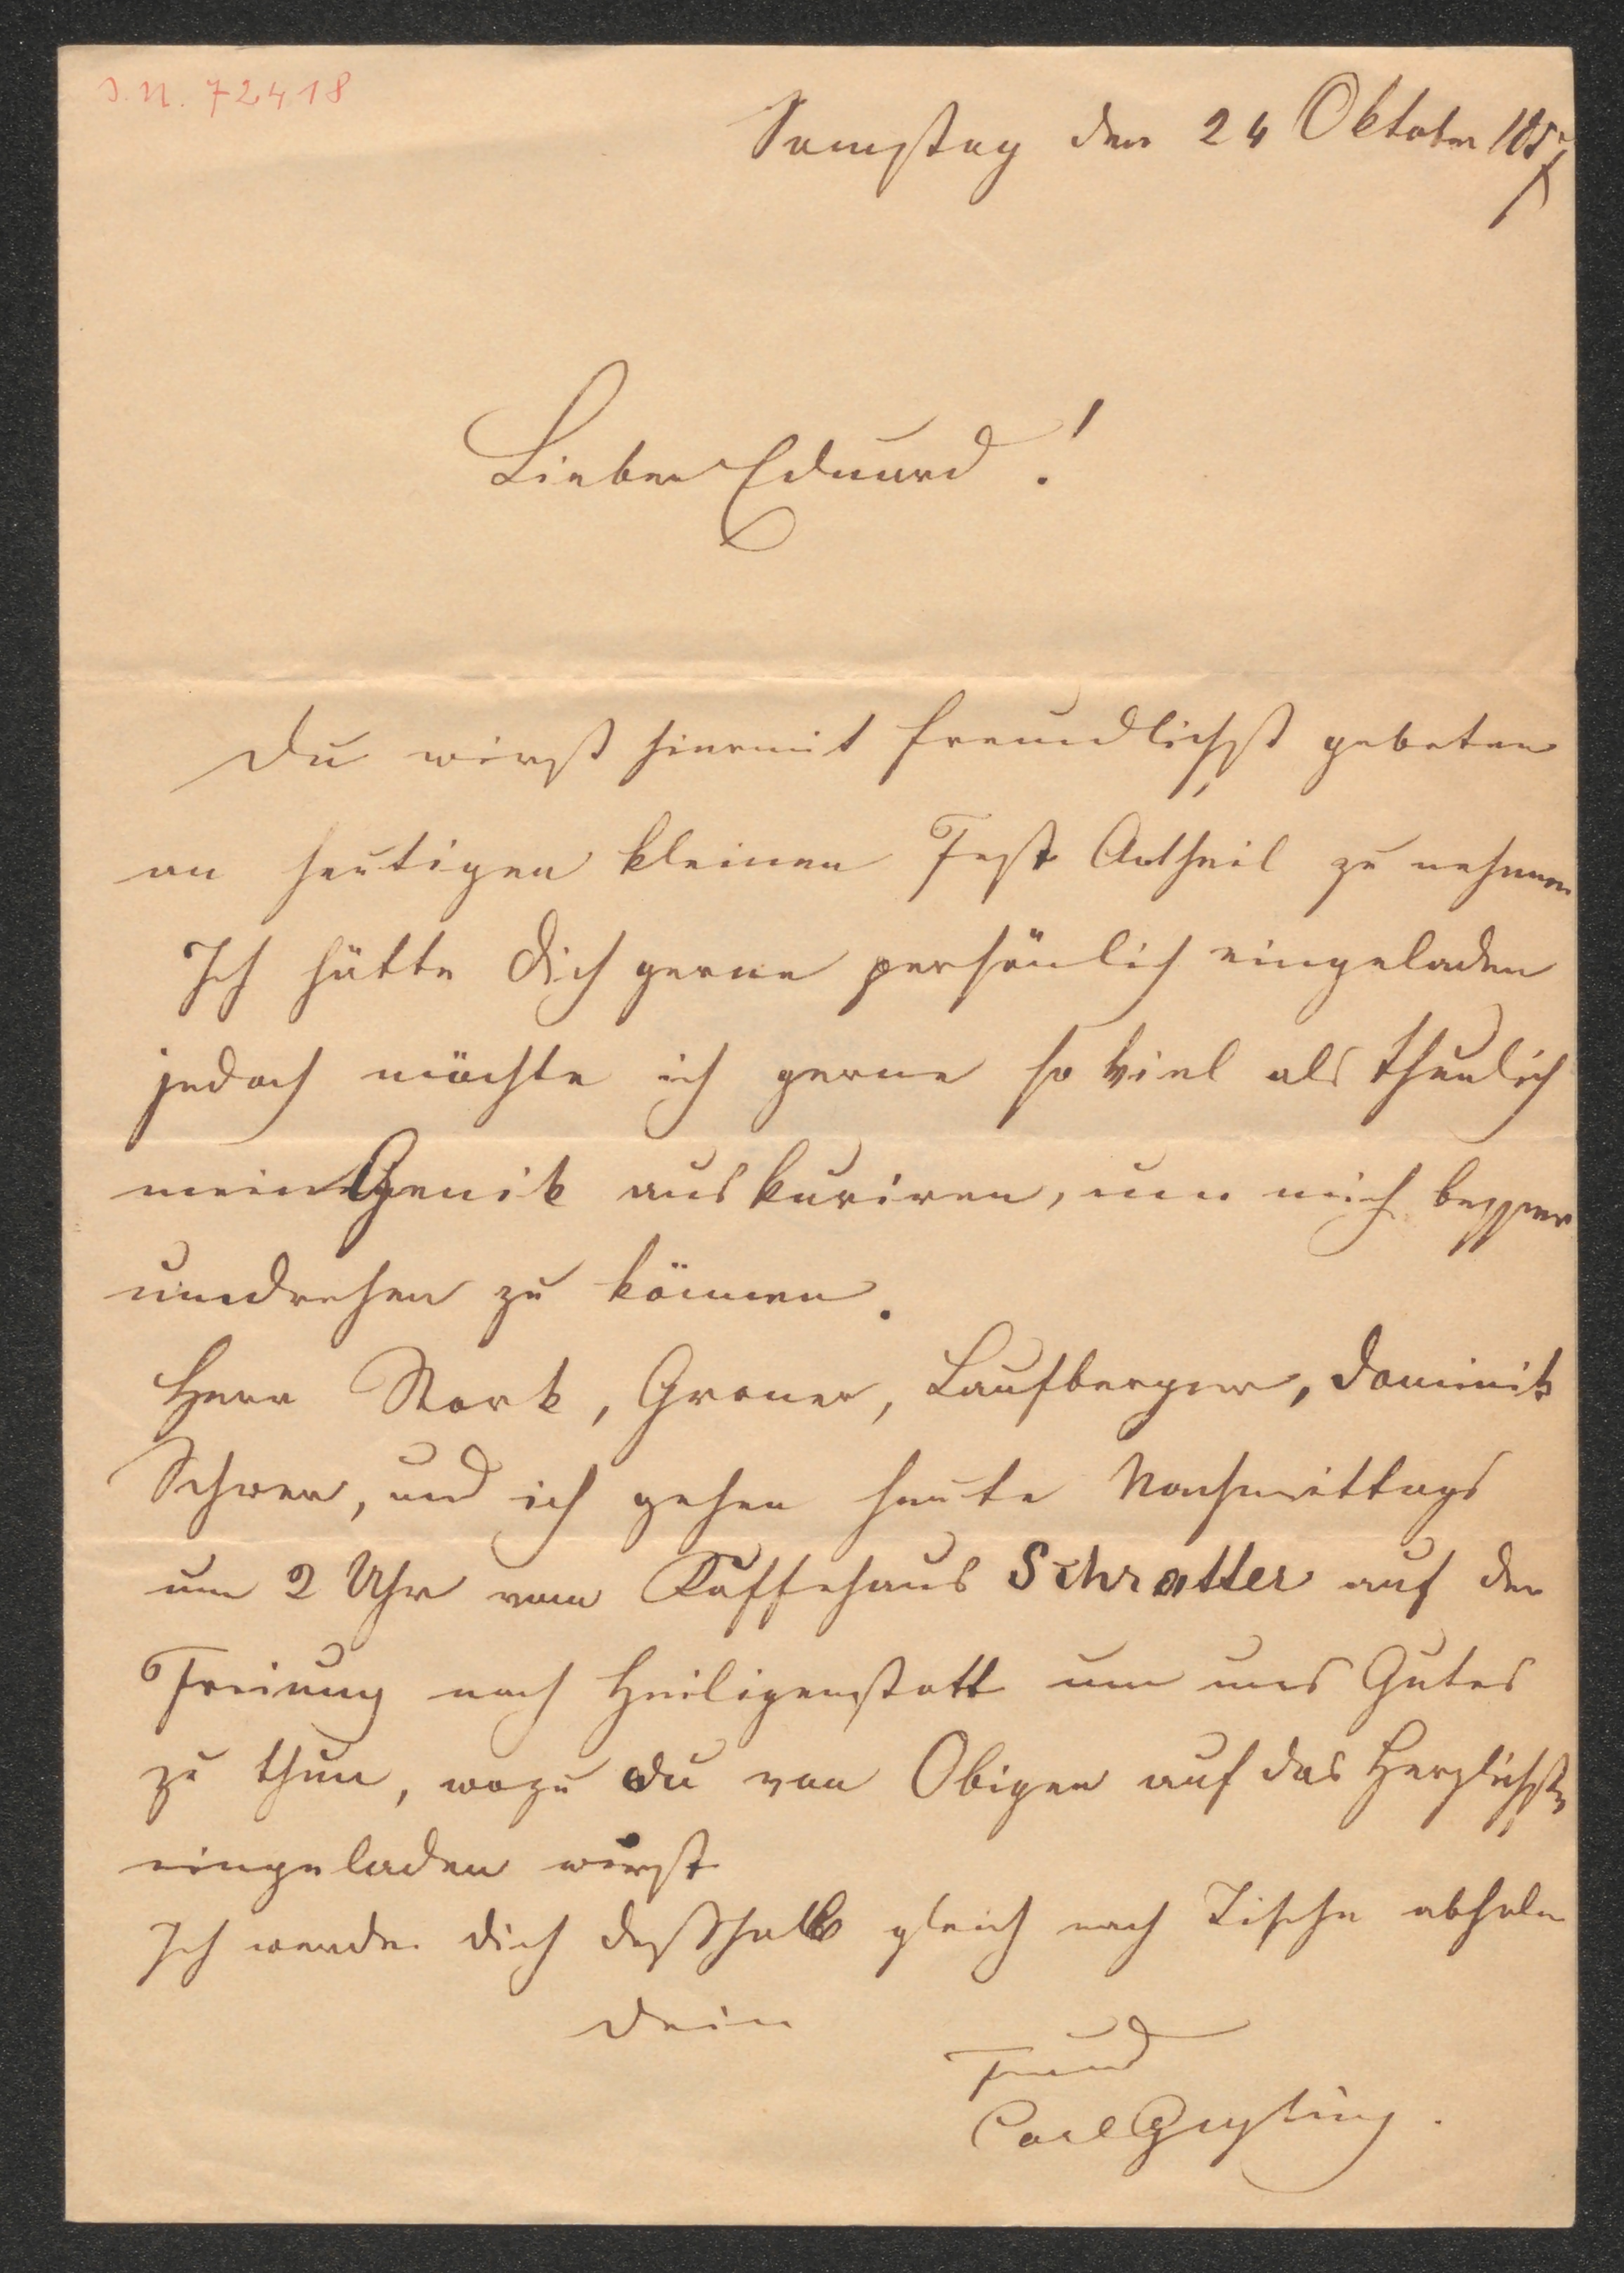 J. N. 72418
Samstag den 24 Oktober 1857
Lieber Eduard!
Du wirst hiermit freundlichst gebeten
an heutigen kleinen Fest Antheil zu nehmen
Ich hätte Dich gerne persönlich eingeladen
jedoch möchte ich gerne so viel als thunlich
mein Genik auskuriren, um mich besser
umdrehen zu können.
Herr Stork, Groner, Laufberger, Dominik
Schwer, und ich gehen heute Nachmittags
um 2 Uhr vom Kaffehaus Schratter auf der
Freiung nach Heiligenstatt um uns Gutes
zu thun, wozu du von Obigen auf das Herzlichste
eingeladen wirst
Ich werde dich deßhalb gleich nach Tische abholen
Dein
Freund
Carl Geyling.